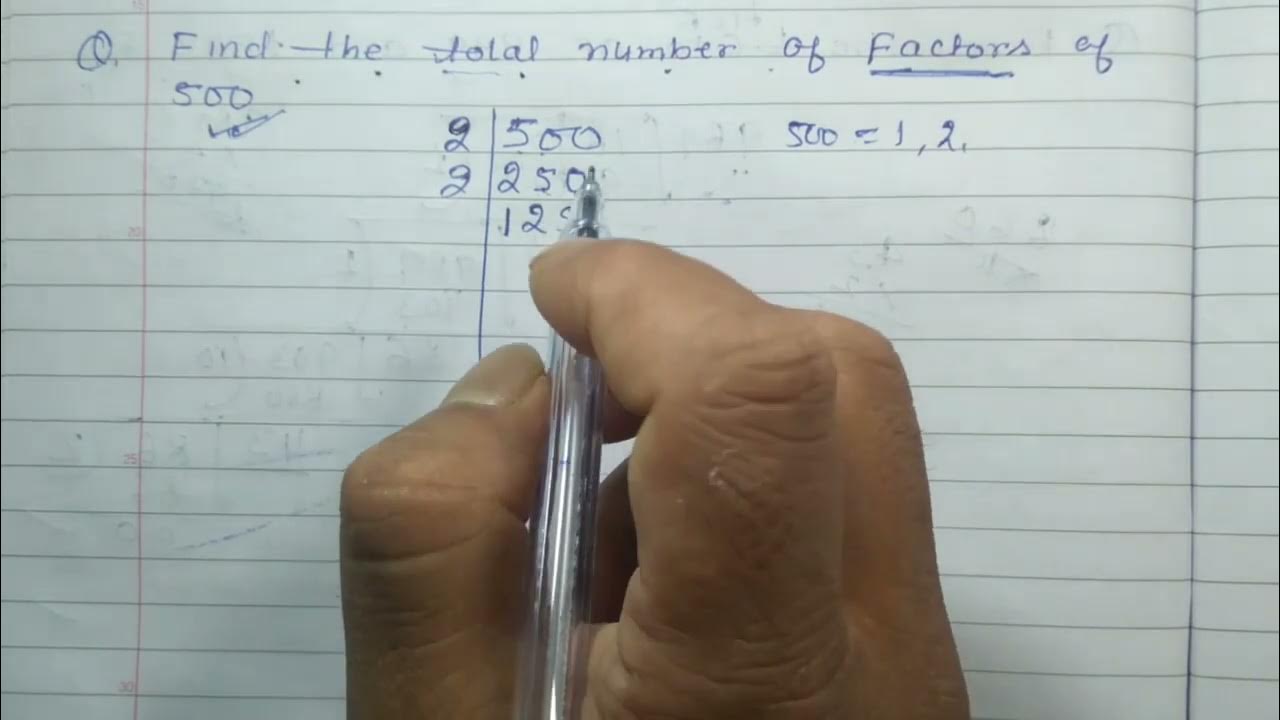 Q. Find the total number of Factors of
500
2 | 500 500 = 1, 2,
2 | 250
12